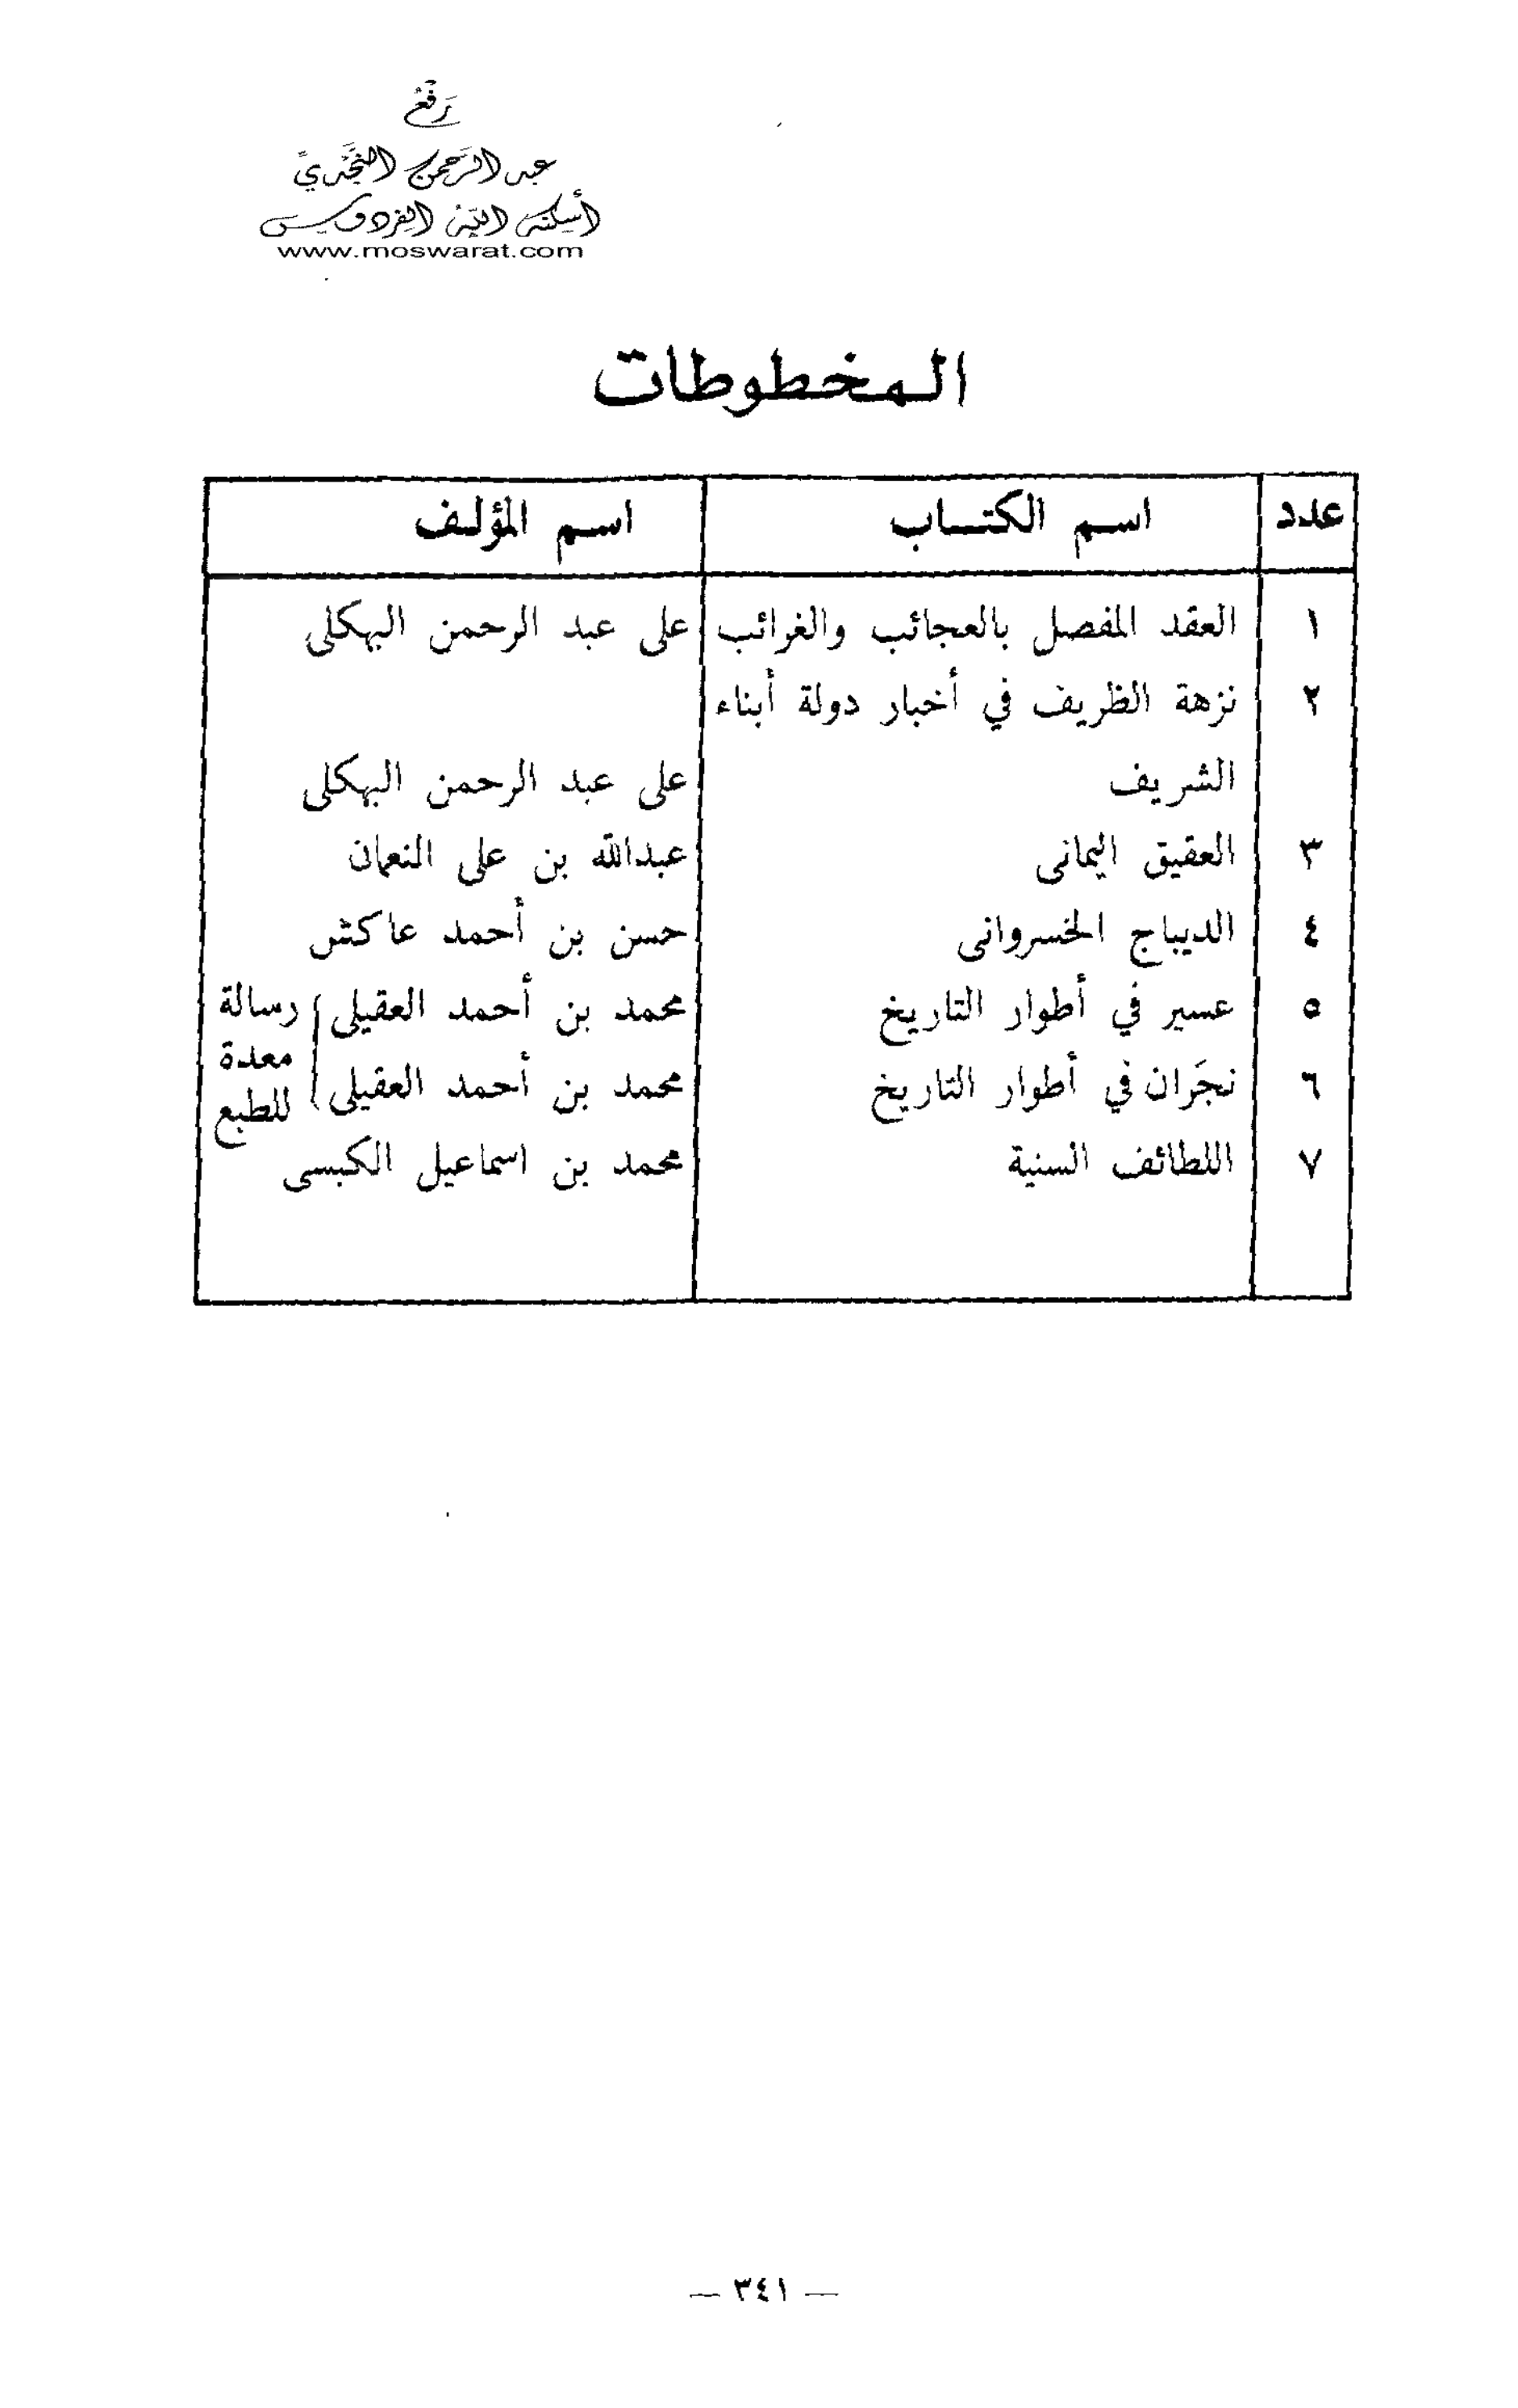 رَفْعُ
عبد الرَّحمن النَّجَّديّ
أسكنه الله الفردوس
www.moswarat.com
المخطوطات
عدد اسم الكتاب اسم المؤلف
١ العقد المفصل بالعجائب والغرائب على عبد الرحمن البهكلى
٢ نزهة الظريف في أخبار دولة أبناء
الشريف على عبد الرحمن البهكلى
٣ العقيق اليمانى عبدالله بن على النعمان
٤ الديباج الخسروانى حسن بن أحمد عاكش
٥ عسير في أطوار التاريخ محمد بن أحمد العقيلى رسالة
معدة
٦ نجَران في أطوار التاريخ محمد بن أحمد العقيلى للطبع
٧ اللطائف السنية محمد بن اسماعيل الكبسى
— ٣٤١ —